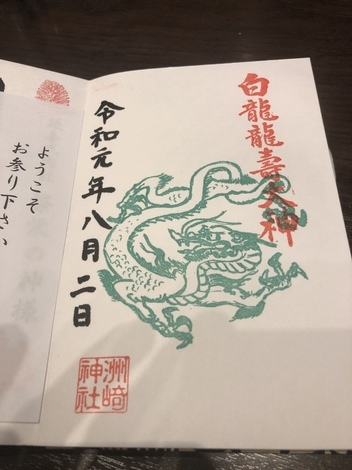 白龍龍壽大神
令和元年八月二日
洲﨑神社
ようこそ
お参り下さい